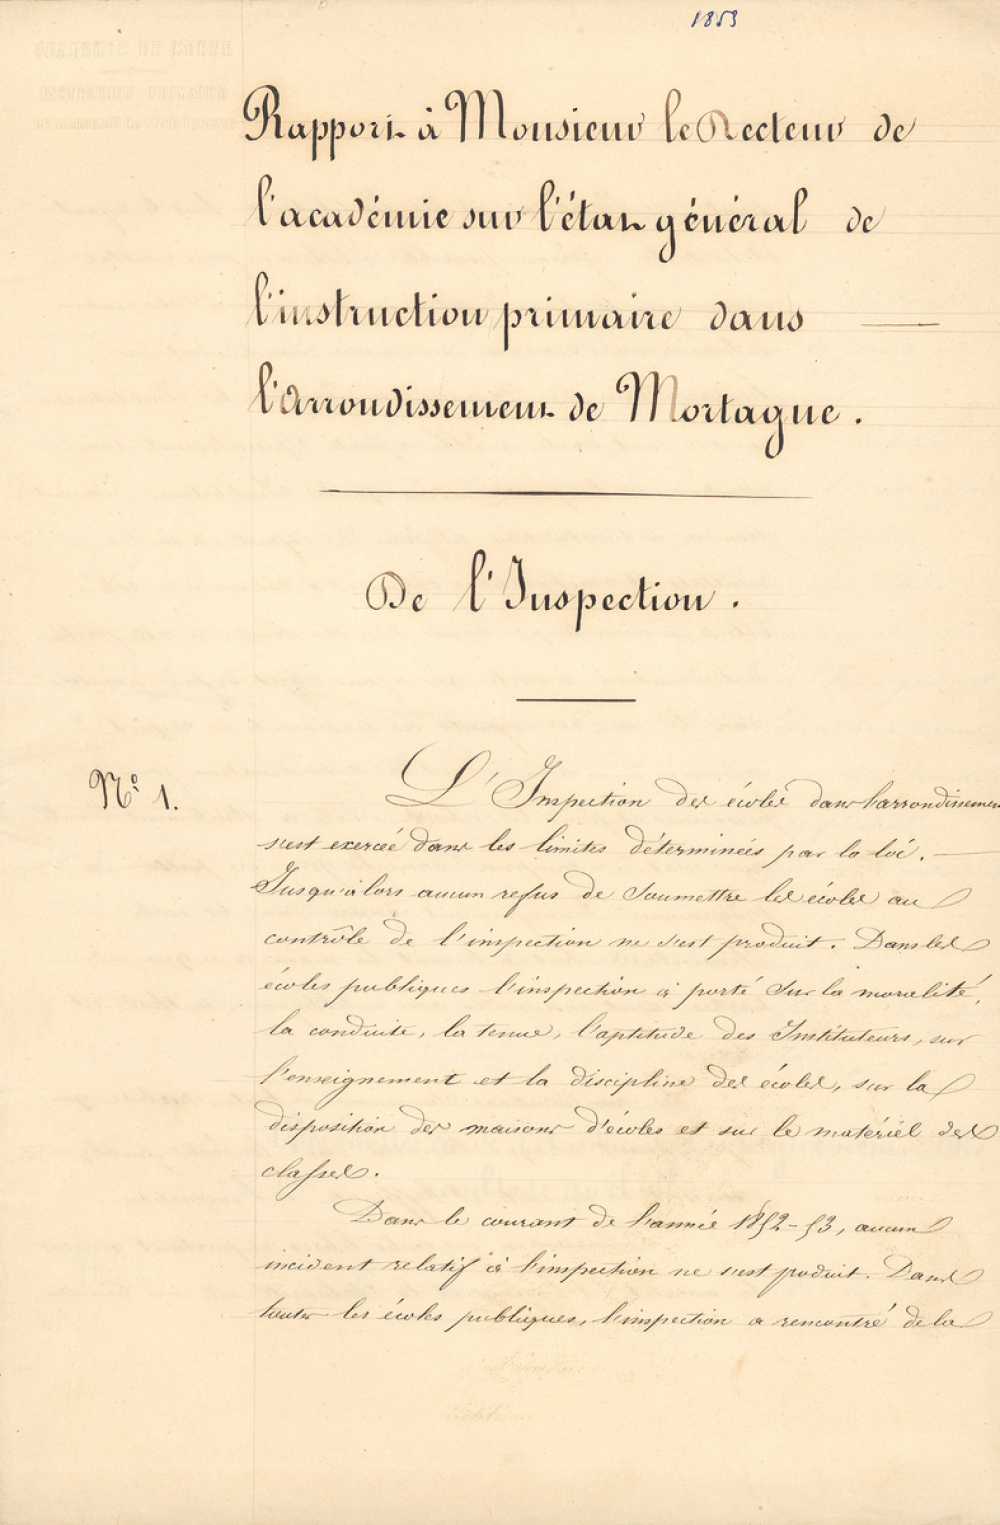 1853
Rapport à Monsieur le Recteur de
l'académie sur l'état général de
l'instruction primaire dans
l'Arrondissement de Mortagne.
De l'Inspection.
N° 1.
L'Inspection des écoles dans l'arrondissement
s'est exercée dans les limites déterminées par la loi.
Jusqu'alors aucun refus de soumettre les écoles au
contrôle de l'inspection ne s'est produit. Dans les
écoles publiques l'inspection a porté sur la moralité,
la conduite, la tenue, l'aptitude des Instituteurs, sur
l'enseignement et la discipline des écoles, sur la
disposition des maisons d'écoles et sur le matériel des
classes.
Dans le courant de l'année 1852-53, aucun
incident relatif à l'inspection ne s'est produit. Dans
toutes les écoles publiques, l'inspection a rencontré de la